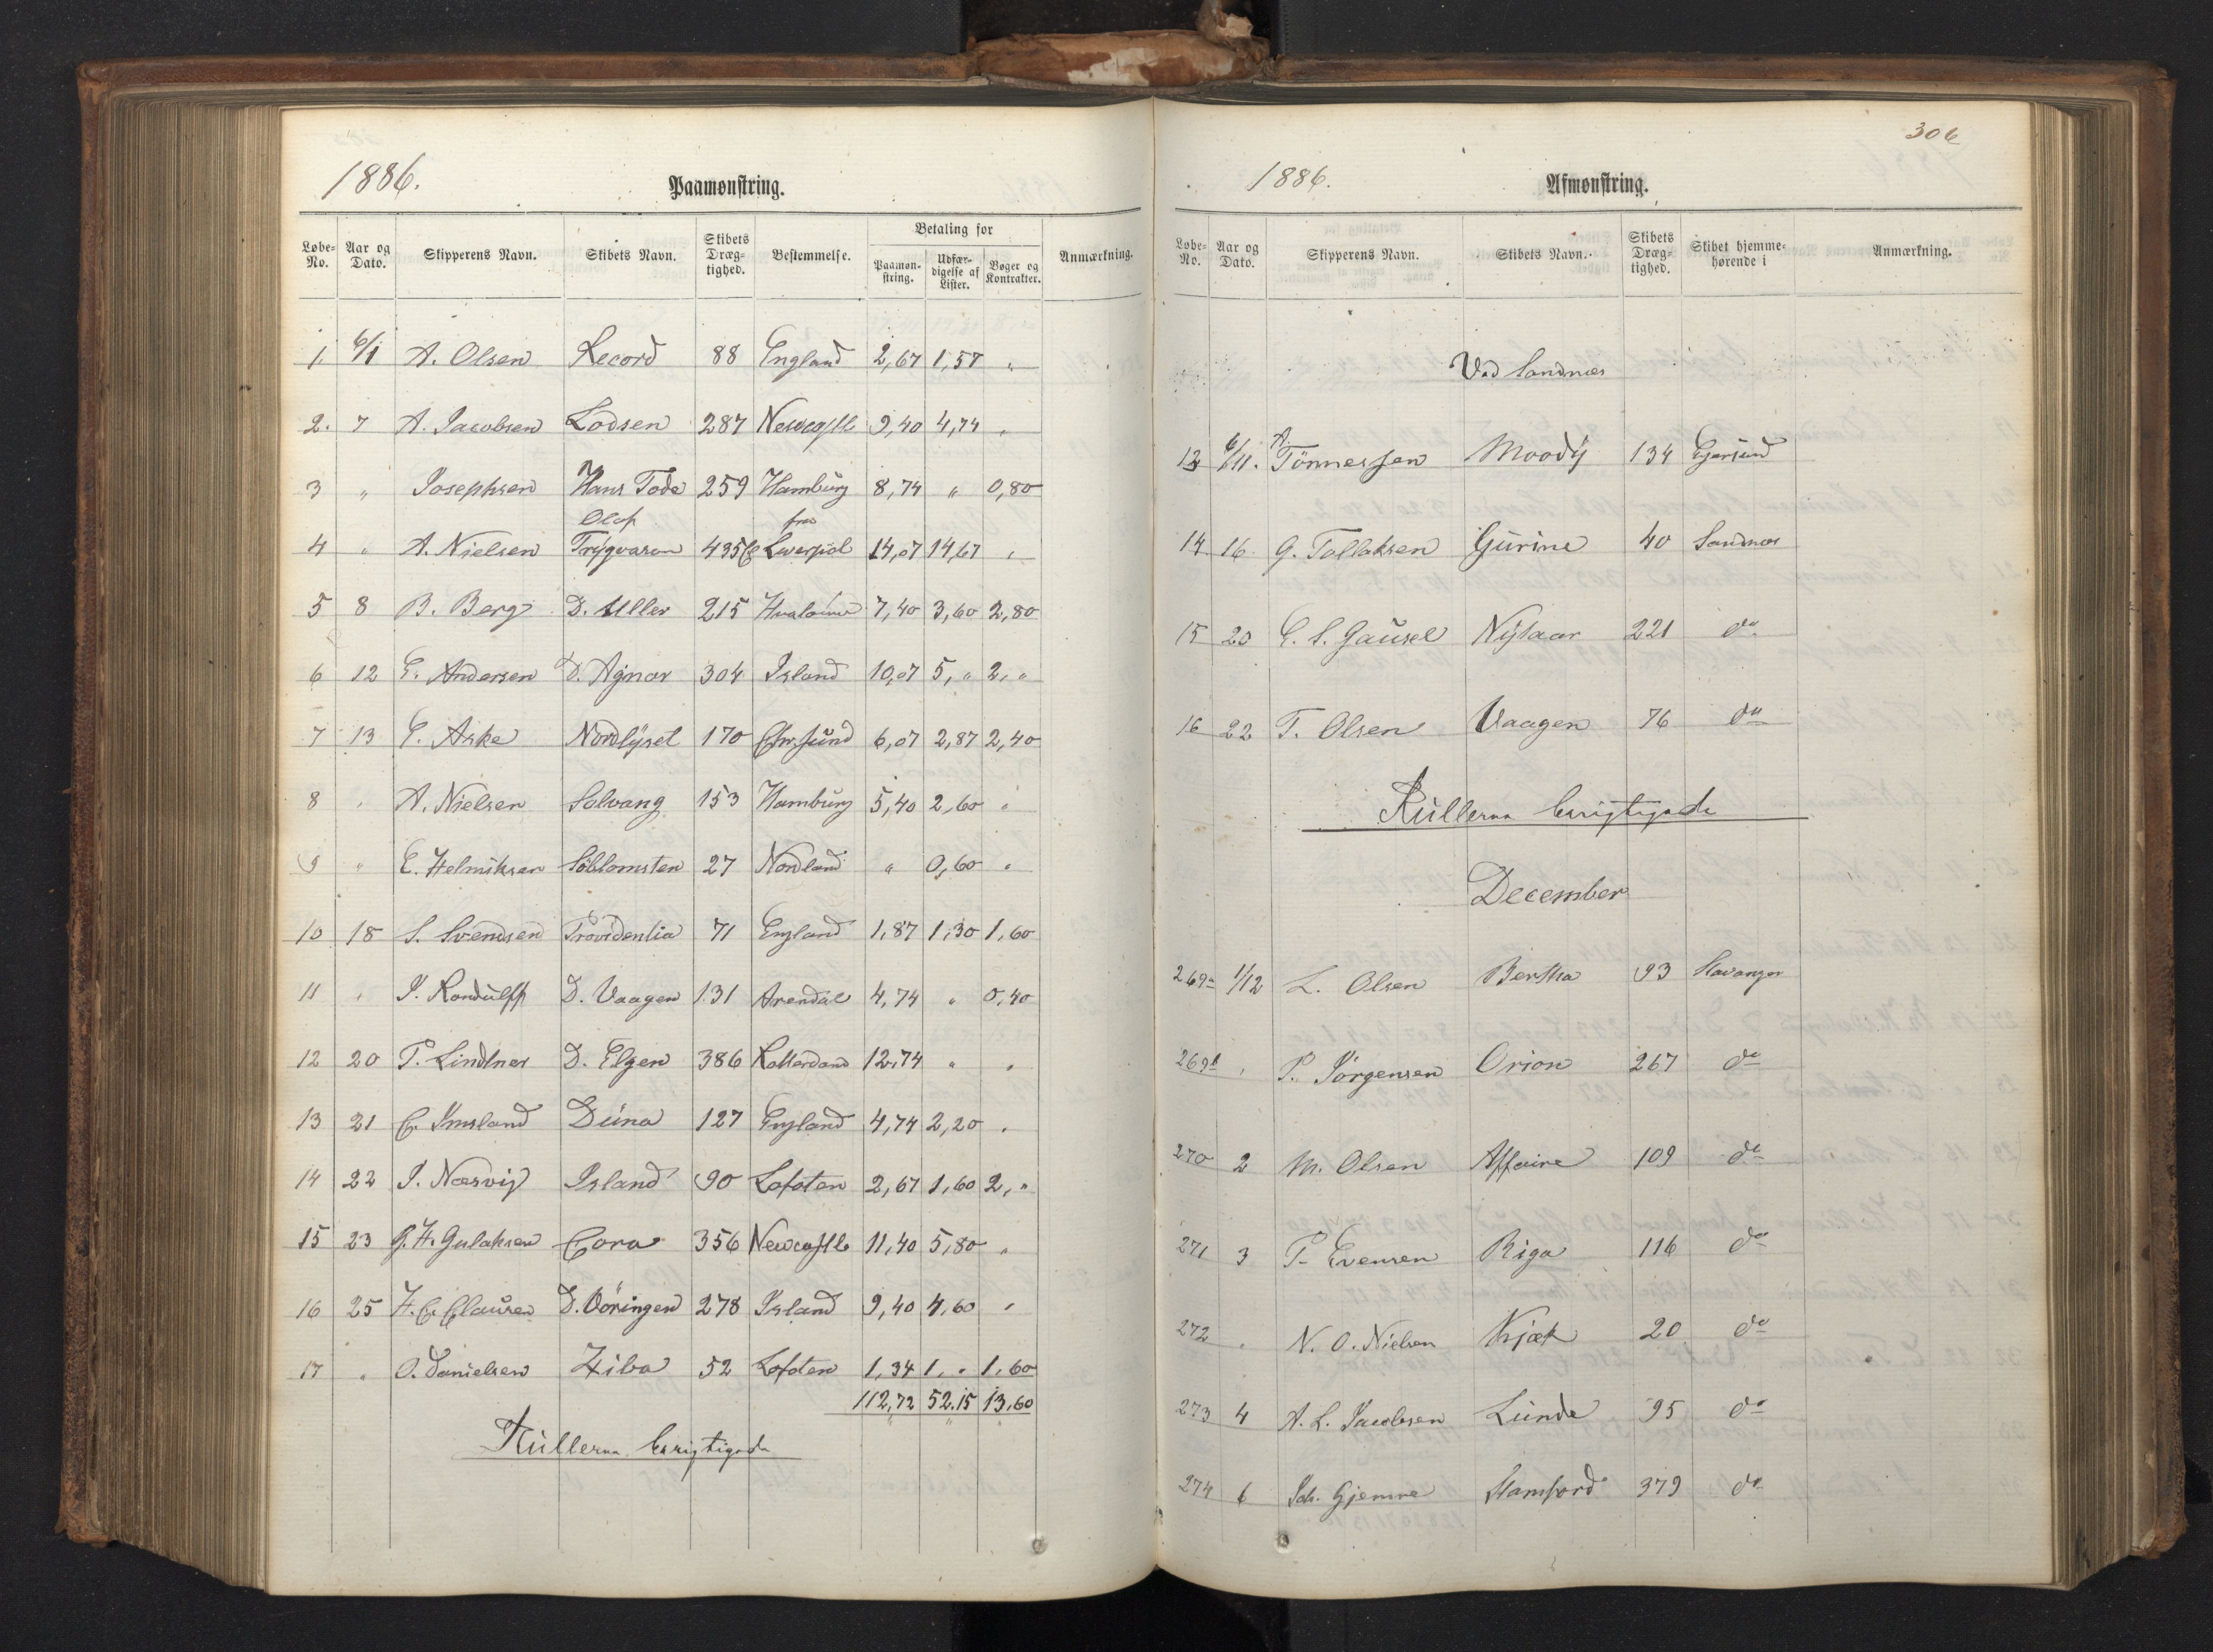 1886.
Paamønstring.
Løbe-No. Aar og Dato. Skipperens Navn. Skibets Navn. Skibets Dræg-tighed. Bestemmelse. Betaling for Paamøn-string. Udfær-digelse af Lister. Bøger og Kontrakter. Anmærkning.
1. 6/1 A. Olsen Record 88 England 2,67 1,57 "
2. 7 A. Jacobsen Lodsen 287 Newcastle 9,40 4,74 "
3 " Josephsen Hans Tode 259 Hamburg 8,74 " 0,80
4 " A. Nielsen Olaf Trygvason 435 fra Liverpol 14,07 14,67 "
5 8 B. Berg D. Uller 215 7,40 3,60 2,80
6 12 E. Andersen D. Agnar 304 Island 10,07 5, " 2, "
7 13 E. Aske Nordlyset 170 Chr.sund 6,07 2,87 2,40
8 " A. Nielsen Solvang 153 Hamburg 5,40 2,60 "
9 " E. Helmiksen Söblomsten 27 Nordland " 0,60 "
10 18 S. Svendsen Providentia 71 England 1,87 1,30 1,60
11 " J. Rondulff D. Vaagen 131 Arendal 4,74 " 0,40
12 20 P. Lindtner D. Elgen 386 Rotterdam 12,74 " "
13 21 C. Imsland Düna 127 England 4,74 2,20 "
14 22 J. Næsvig Island 90 Lofoten 2,67 1,60 2, "
15 23 G. H. Gulaksen Cora 356 Newcastle 11,40 5,80 "
16 25 H. C. Clausen D. Vöringen 278 Island 9,40 4,60 "
17 " O. Danielsen Ziba 52 Lofoten 1,34 1, " 1,60
112,72 52,15 13,60
Rullerne berigtigede
306
1886.
Afmønstring.
Løbe-No. Aar og Dato. Skipperens Navn. Skibets Navn. Skibets Dræg-tighed. Skibet hjemme-hørende i Anmærkning.
Ved Sandnæs
13 6/11. A. Tönnessen Moody 134 Egersund
14 16 G. Tallaksen Gurine 40 Sandnæs
15 20 E. S. Gausel Nytaar 221 do
16 22 T. Olsen Vaagen 76 do
Rullerne berigtigede
December
269a 1/12 L. Olsen Bertha 93 Stavanger
269b " P. Jörgensen Orion 267 do
270 2 M. Olsen Affaire 109 do
271 3 P. Evensen Riga 116 do
272 " N. O. Nielsen Kjæk 20 do
273 4 A. L. Jacobsen Lunde 95 do
274 6 Joh. Gjemre Stamford 379 do